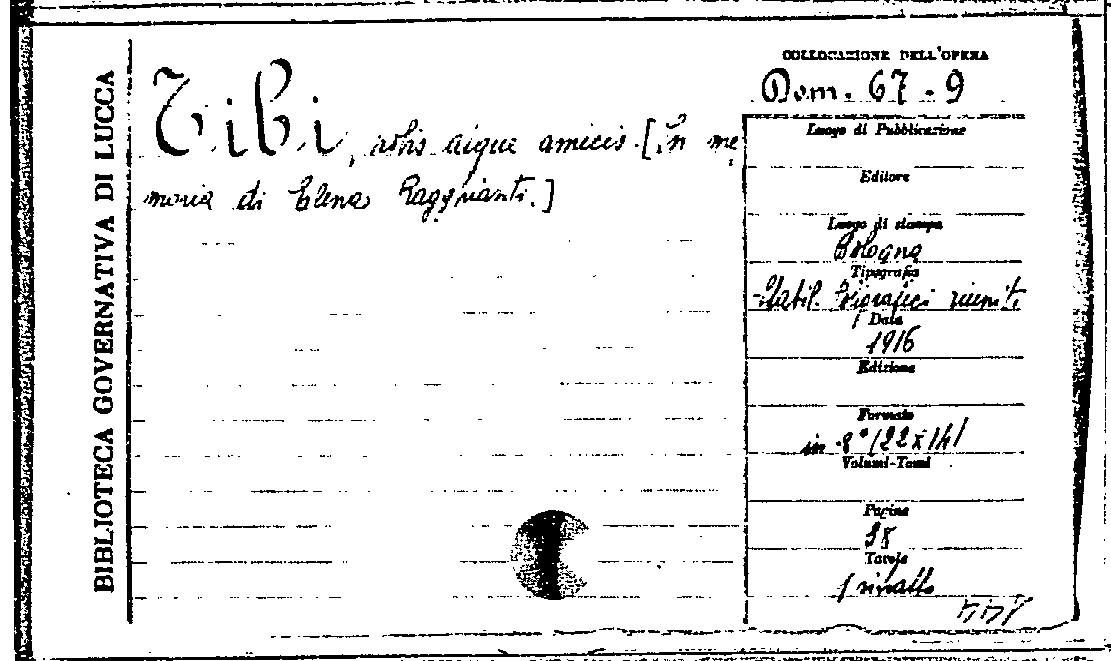 BIBLIOTECA GOVERNATIVA DI LUCCA
Tibi, nobis atque amicis. [In me
moria di Elena Ragghianti.]
COLLOCAZIONE DELL'OPERA
Dom. 67.9
Luogo di Pubblicazione
Editore
Luogo di stampa
Bologna
Tipografia
Stabil. Poligrafici riuniti
Data
1916
Edizione
Formato
in 8° (22x14)
Volumi-Tomi
Pagine
38
Tavole
1 ritratto